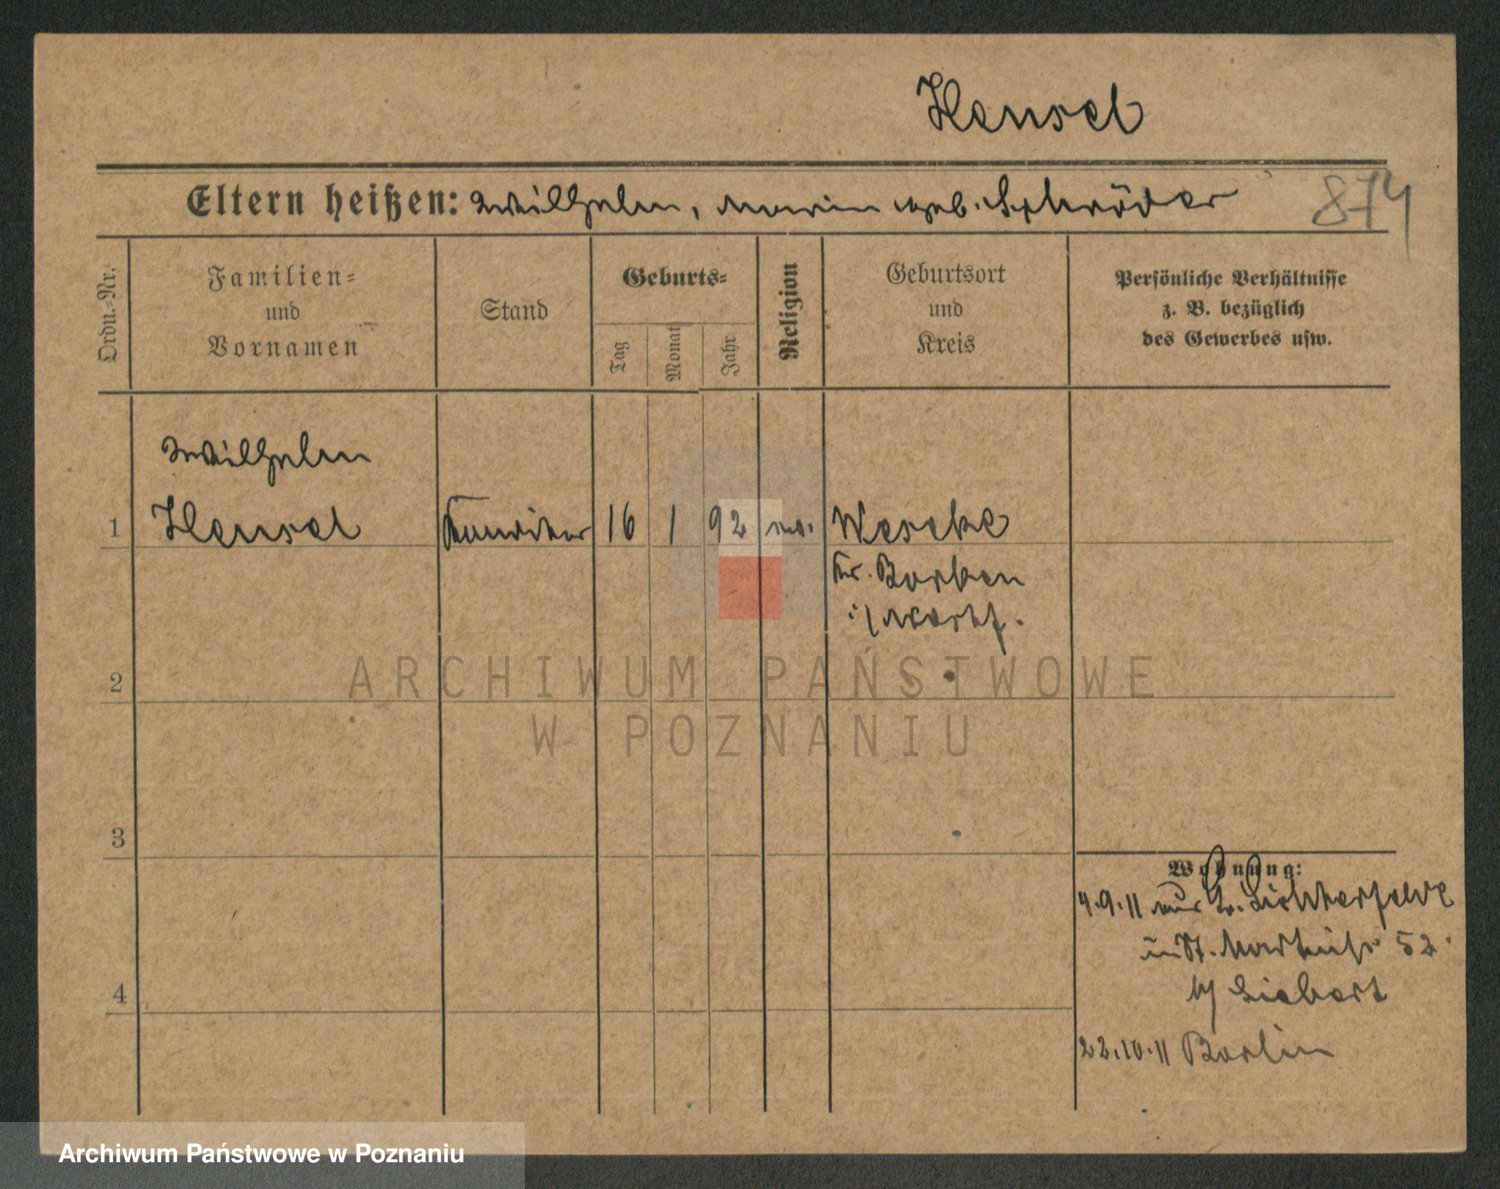 Hensel
Eltern heißen: Wilhelm, Marie geb. Schröder
874
Ordn.=Nr.
Familien=
und
Vornamen
Stand
Geburts=
Tag
Monat
Jahr
Religion
Geburtsort
und
Kreis
Persönliche Verhältnisse
z. B. bezüglich
des Gewerbes usw.
Wilhelm
1 Hensel 16 1 92 ev. Weseke
Kr. Borken
i/Westf.
2
3
4
Wohnung:
4.9.11 aus Gr. Lichterfelde
St. Martinstr. 52
b/ Siebert
22.10.11 Berlin
ARCHIWUM PAŃSTWOWE
W POZNANIU
Archiwum Państwowe w Poznaniu